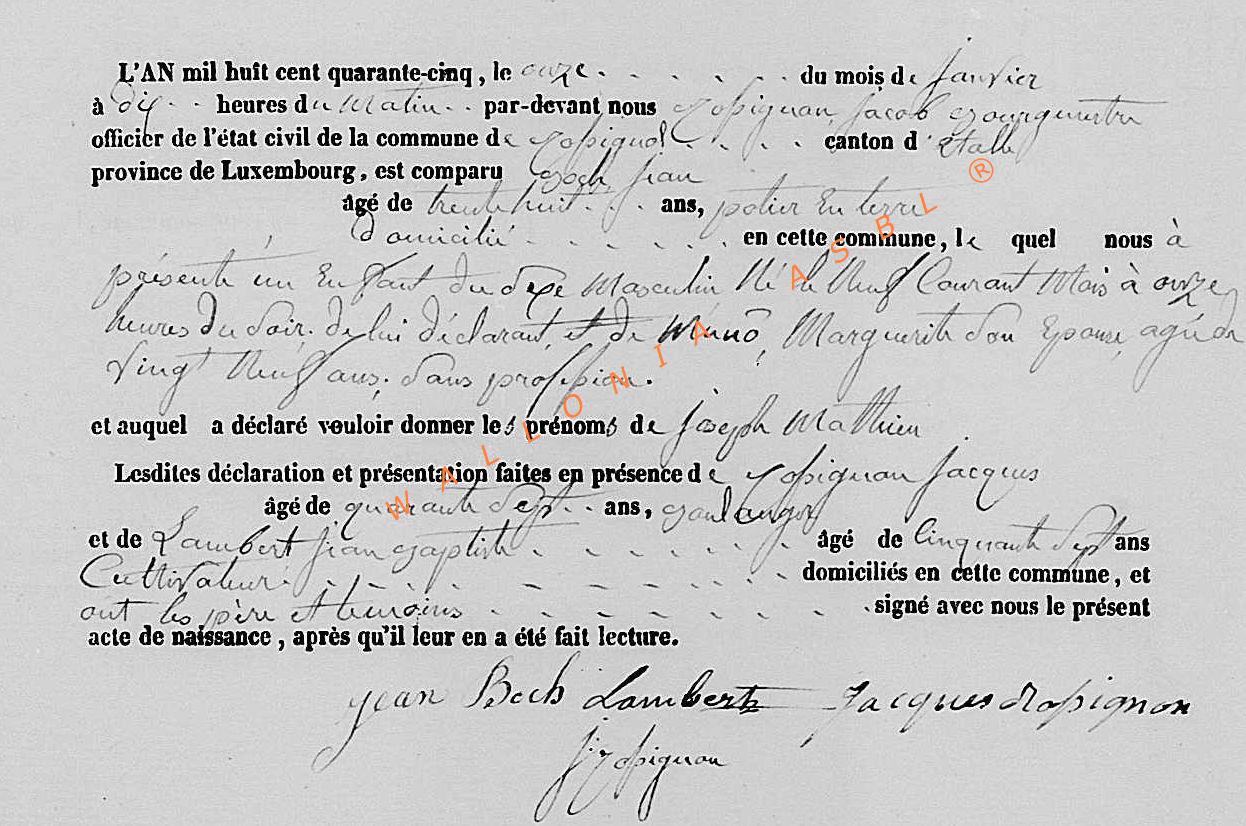 L'AN mil huit cent quarante-cinq, le onze du mois de Janvier
à dix heures du Matin par-devant nous Rossignon Jacob Bourgmestre
officier de l'état civil de la commune de Rossignol canton d'Etalle
province de Luxembourg, est comparu Boch Jean
âgé de trente huit ans, potier En terre
Domicilié en cette commune, le quel nous à
présenté un Enfant du Sexe Masculin Né le Neuf Courant Mois à onze
heures du Soir, de lui déclarant, et de Munô, Marguerite Son Epouse, agée de
Vingt Neuf ans, Sans profession.
et auquel a déclaré vouloir donner les prénoms de Joseph Mathieu
Lesdites déclaration et présentation faites en présence de Rossignon Jacques
âgé de quarante Sept ans, Boulanger
et de Lambert Jean Baptiste âgé de Cinquante Sept ans
Cultivateur domiciliés en cette commune, et
ont les père et temoins signé avec nous le présent
acte de naissance, après qu'il leur en a été fait lecture.
jean Boch Lambert Jacques Rossignon
J. Rossignon
WALLONIA ASBL ®